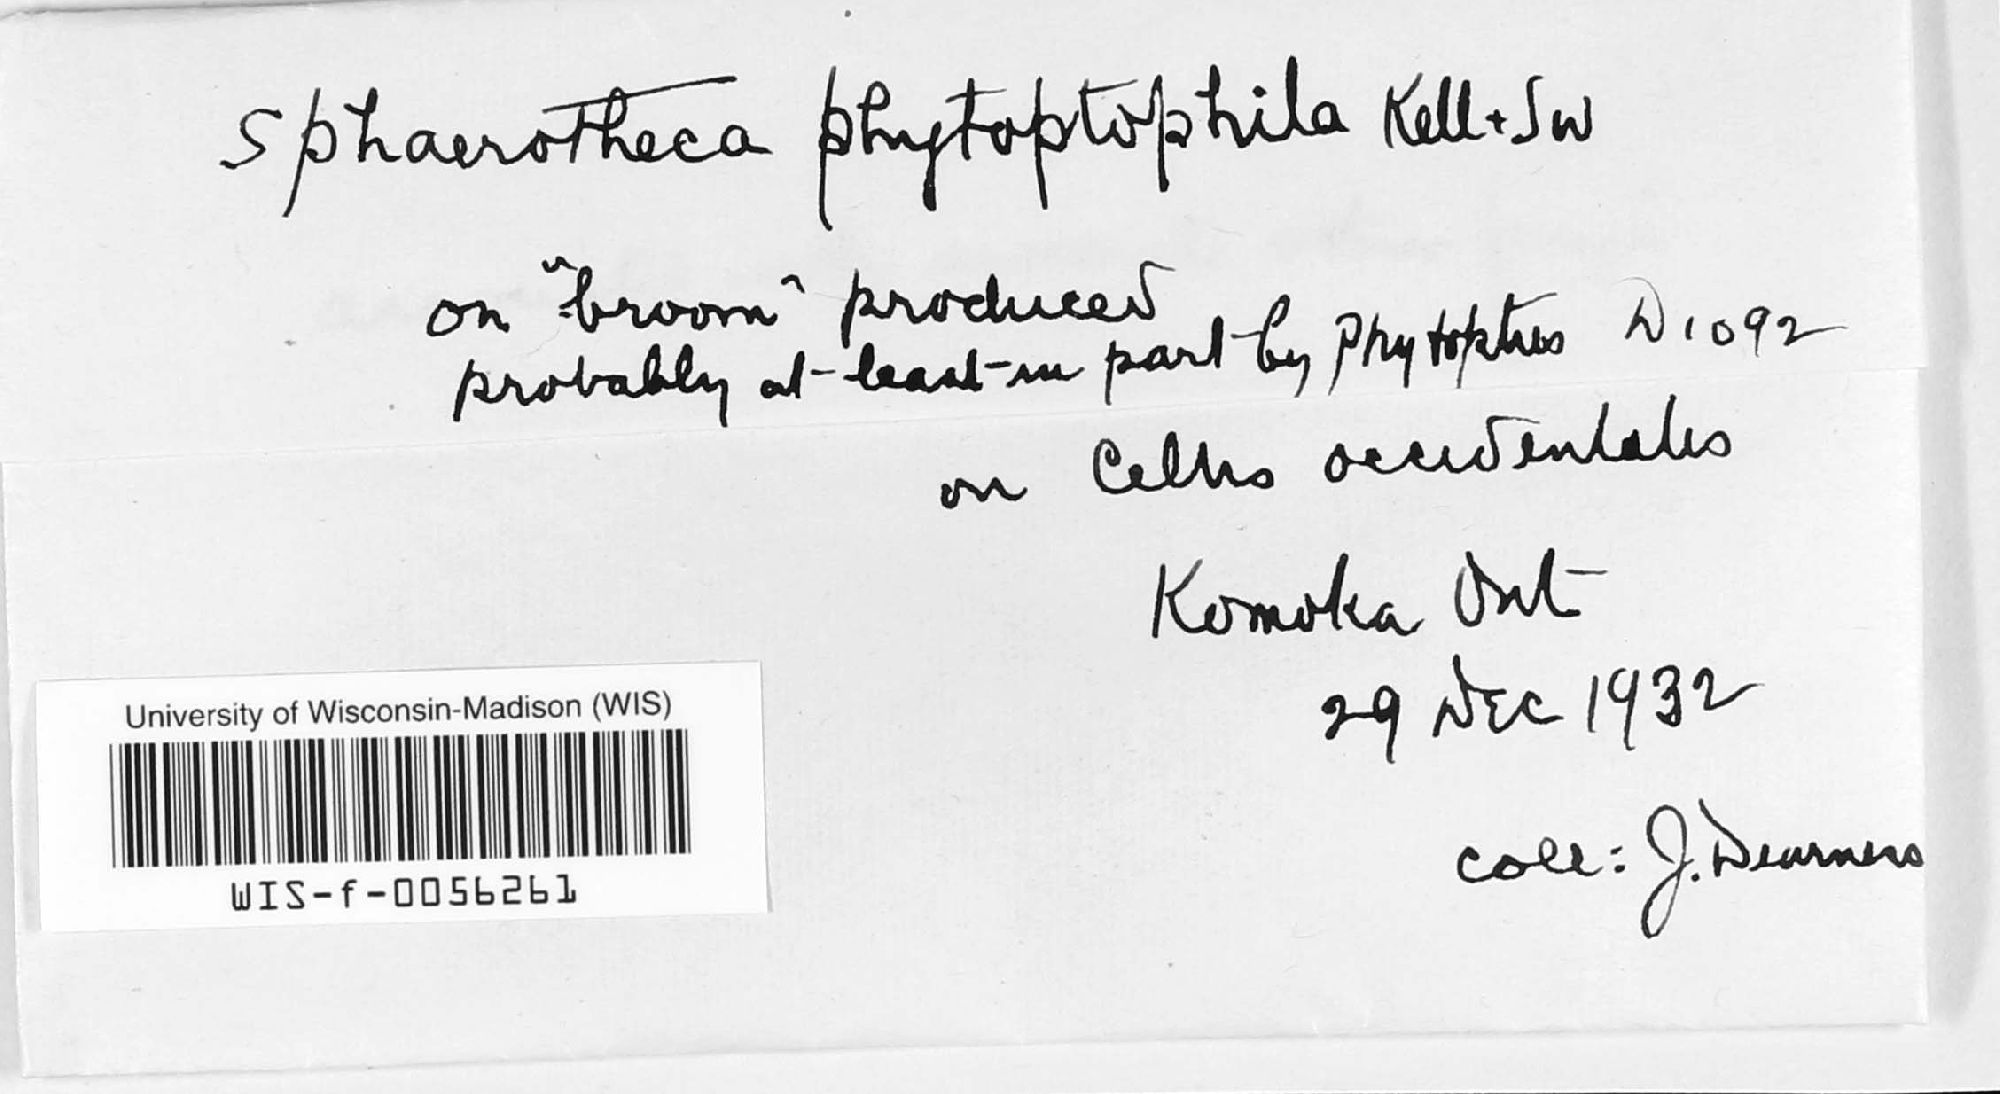 Sphaerotheca phytoptophila Kell + Sw
on "broom" produced
probably at least in part by Phytoptus D1092
on Celtis occidentalis
Komoka Ont
29 Dec 1932
coll: J. Dearness
University of Wisconsin-Madison (WIS)
WIS-f-0056261